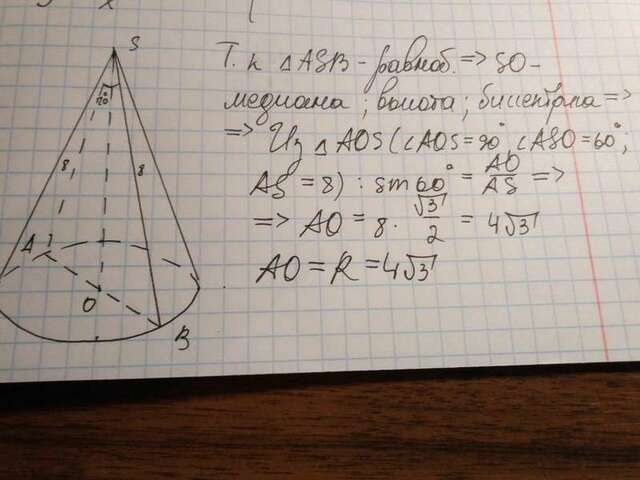 S
Т. к △ASB - равноб. => SO -
медиана ; высота ; биссектриса =>
=> Из △AOS (∠AOS = 90°, ∠ASO = 60°;
AS = 8) : sin 60° = AO/AS =>
=> AO = 8 · √3/2 = 4√3
AO = R = 4√3
8
8
A
O
B